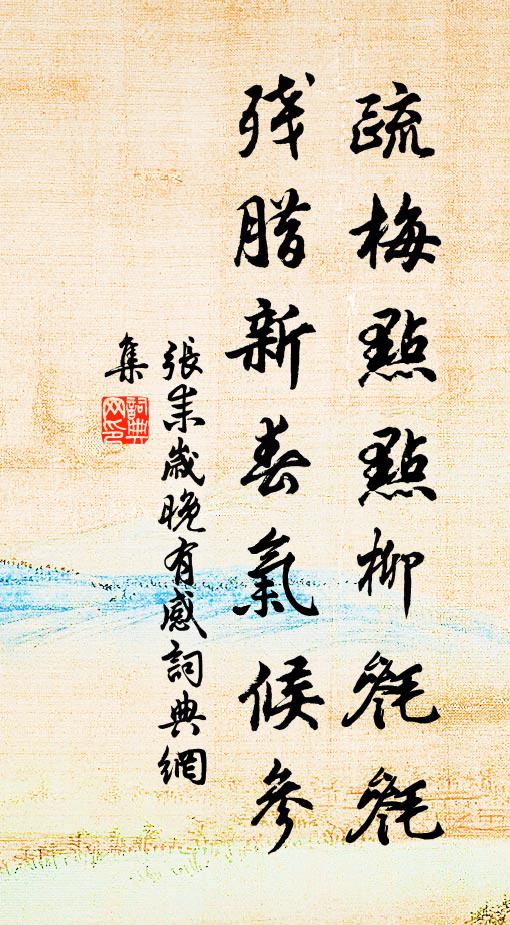 疏梅點點柳毿毿
残腊新春氣候參
張耒歲晚有感詞典網
集
詞典
网印